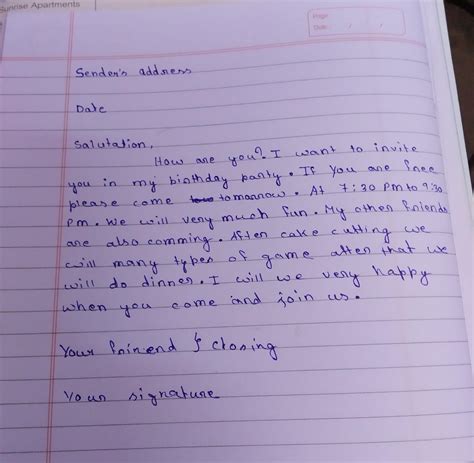 Sunrise Apartments
Page
Date / /
Sender's address
Date
Salutation,
How are you? I want to invite
you in my birthday panty. If you are free
please come tomorrow. At 7:30 Pm to 9:30
pm. We will very much fun. My other friends
are also comming. After cake cutting we
will many types of game after that we
will do dinner. I will we very happy
when you come and join us.
Your frinend } closing
Your signature